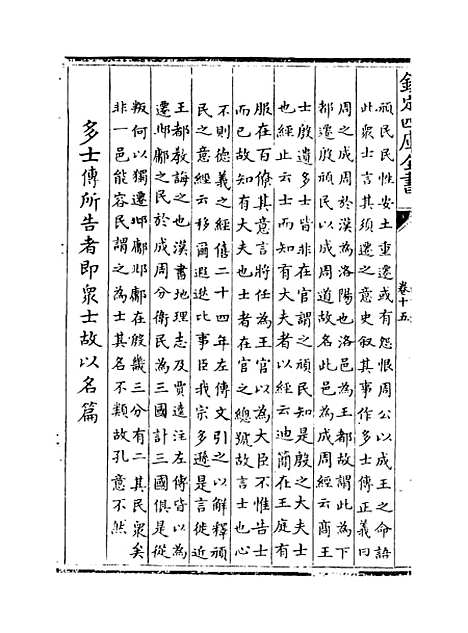 欽定四庫全書
卷十五
頑民民性安土重遷或有怨恨周公以成王之命語
此衆士言其須遷之意史叙其事作多士傳正義曰
周之成周於漢為洛陽也洛邑為王都故謂此為下
都遷殷頑民以成周道故名此邑為成周經云商王
士殷遺多士皆非在官謂之頑民知是殷之大夫士
也經止云士而知有大夫者以經云迪簡在王庭有
服在百僚其意言將任為王官以為大臣不惟告士
而已故知有大夫也士者在官之總號故言士也心
不則德義之經僖二十四年左傳文引之以解釋頑
民之意經云移爾遐逖比事臣我宗多遜是言徙近
王都教誨之也漢書地理志及賈逵注左傳皆以為
遷邶鄘之民於成周分衛民為三國計三國俱是從
叛何以獨遷邶鄘邶鄘在殷畿三分有二其民衆矣
非一邑能容民謂之為士其名不類故孔意不然
多士傳所告者即衆士故以名篇